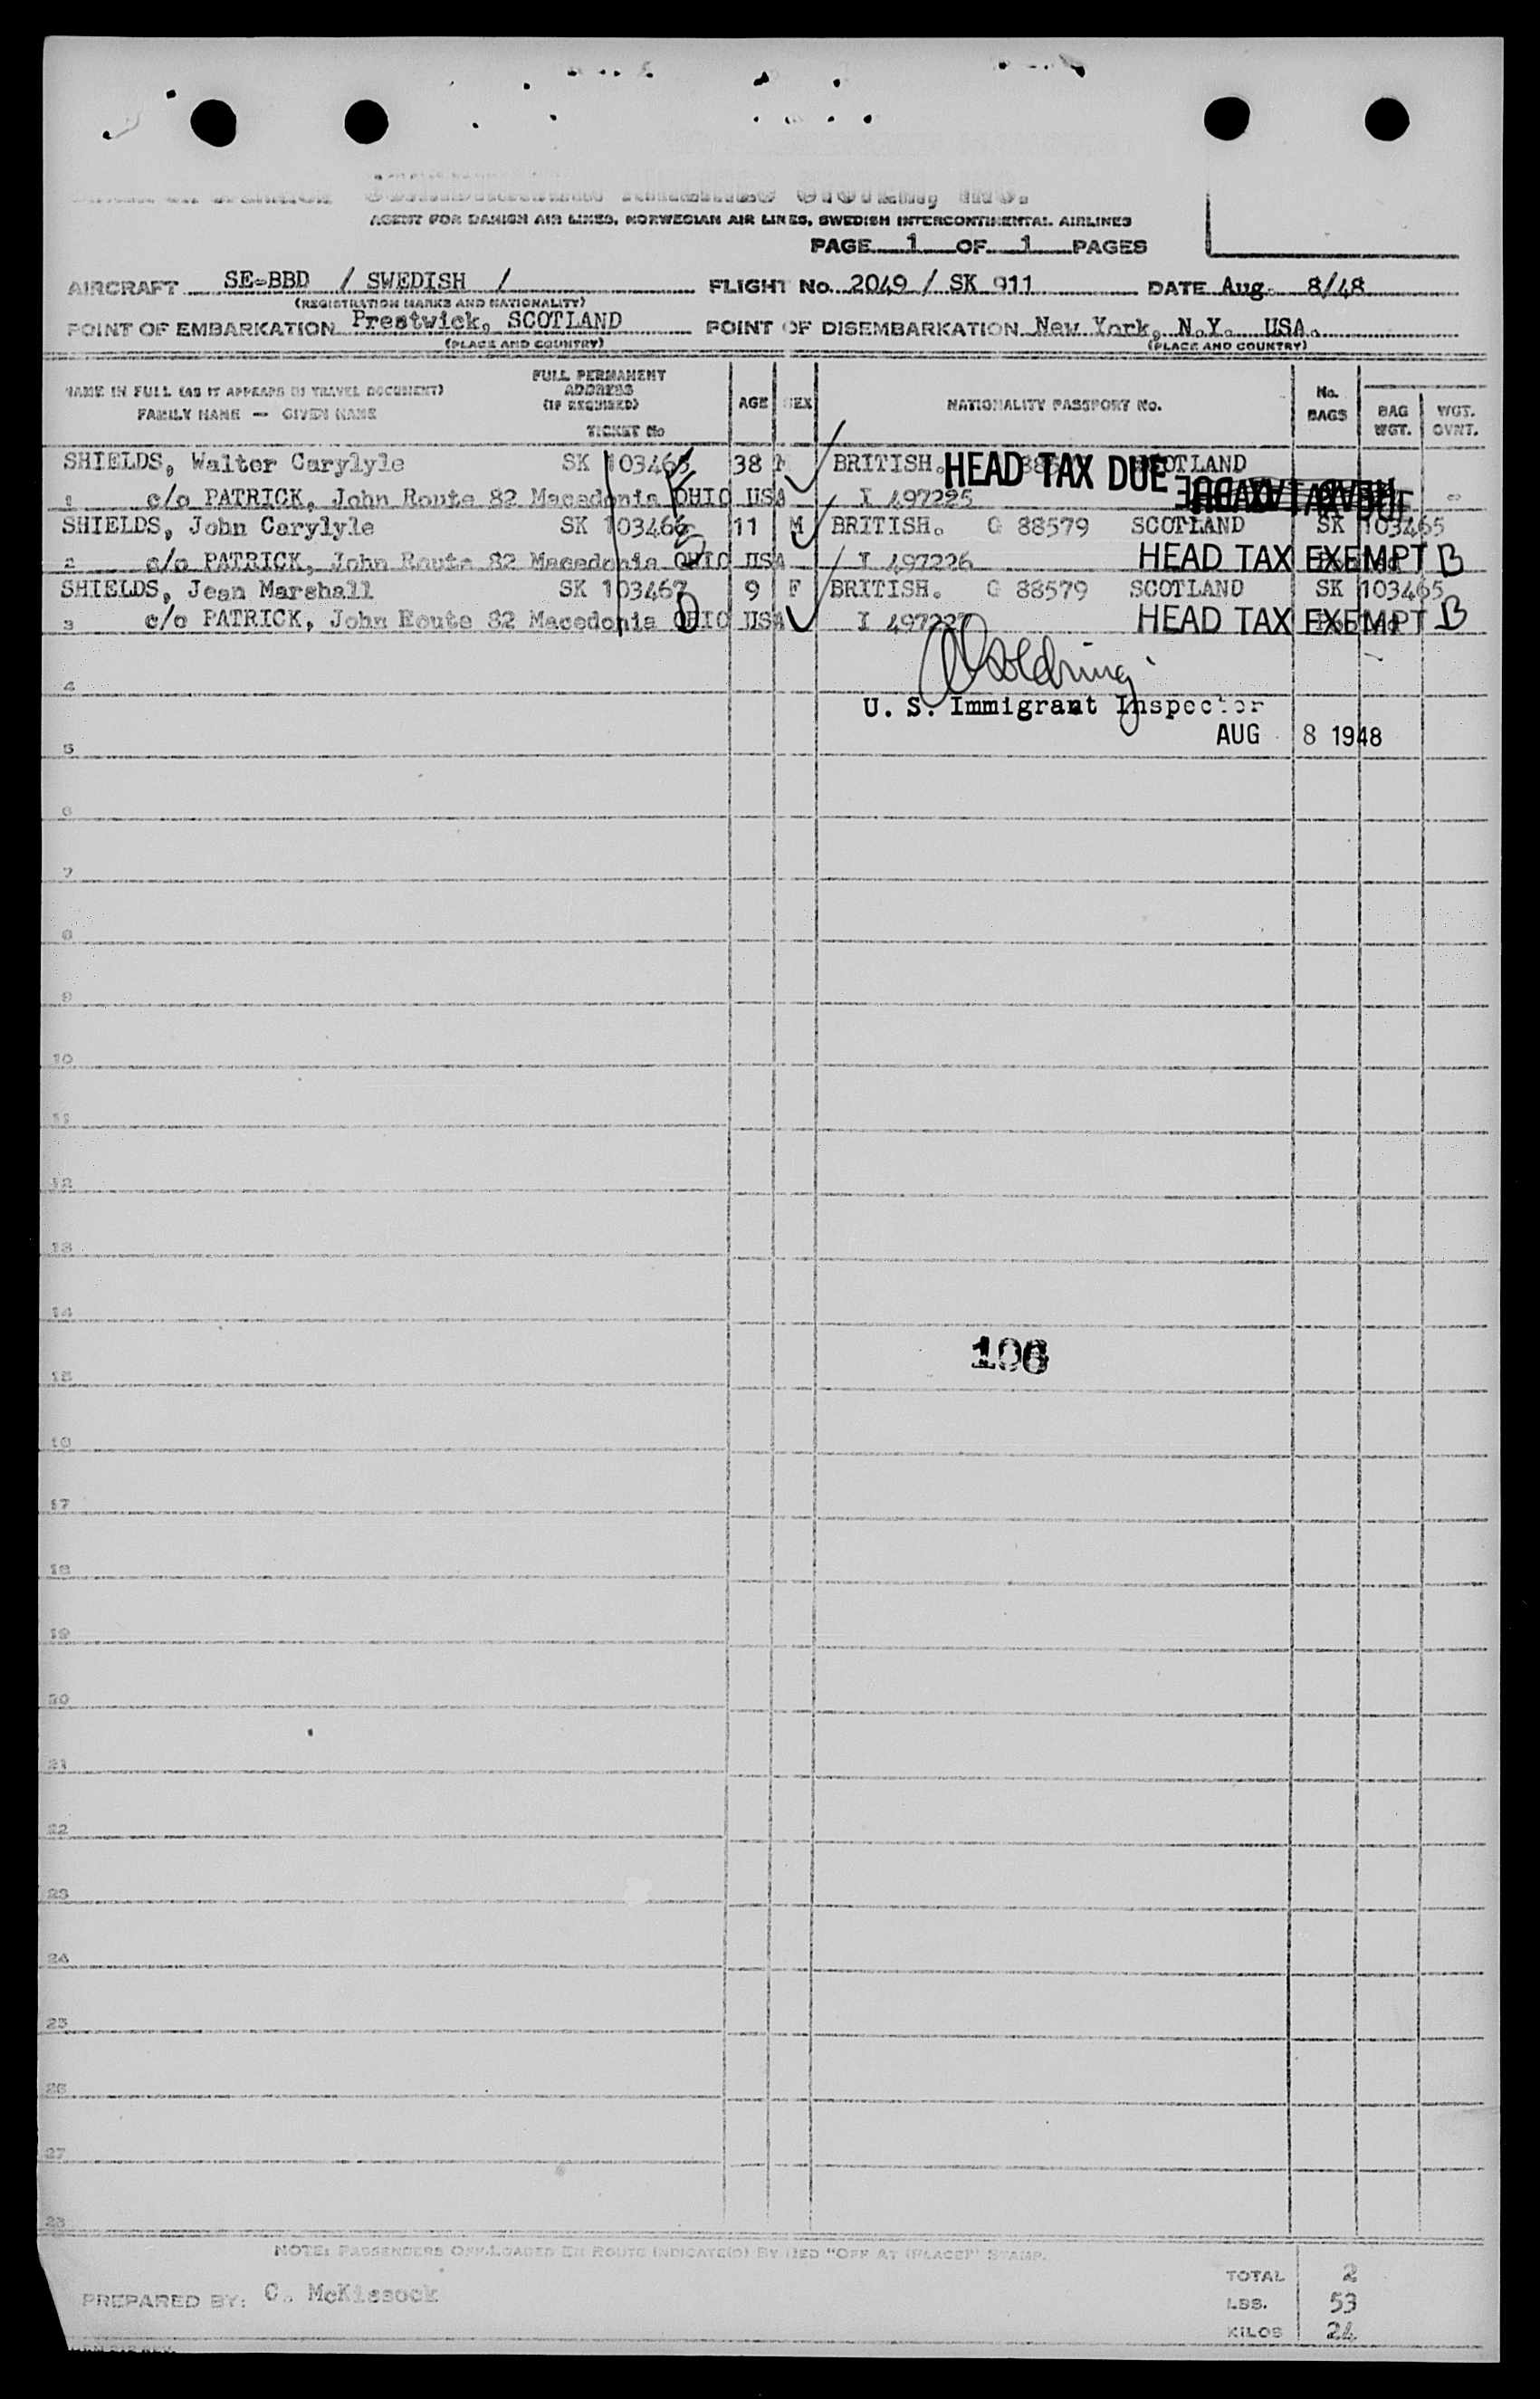 AGENT FOR DANISH AIR LINES, NORWEGIAN AIR LINES, SWEDISH INTERCONTINENTAL AIRLINES
PAGE 1 OF 1 PAGES
AIRCRAFT SE-BBD / SWEDISH / FLIGHT No. 2049 / SK 911 DATE Aug. 8/48
(REGISTRATION MARKS AND NATIONALITY)
POINT OF EMBARKATION Prestwick, SCOTLAND POINT OF DISEMBARKATION New York, N.Y. USA.
(PLACE AND COUNTRY) (PLACE AND COUNTRY)
NAME IN FULL (AS IT APPEARS IN TRAVEL DOCUMENT) FAMILY NAME — GIVEN NAME
FULL PERMANENT ADDRESS (IF REQUIRED) TICKET No
AGE SEX NATIONALITY PASSPORT No. No. BAGS BAG WGT. WGT. OVNT.
SHIELDS, Walter Carylyle SK 103465 38 M BRITISH. HEAD TAX DUE SCOTLAND
1 c/o PATRICK, John Route 82 Macedonia OHIO USA I 497225
SHIELDS, John Carylyle SK 103466 11 M BRITISH. G 88579 SCOTLAND SK 103465
2 c/o PATRICK, John Route 82 Macedonia OHIO USA I 497226 HEAD TAX EXEMPT B
SHIELDS, Jean Marshall SK 103467 9 F BRITISH. G 88579 SCOTLAND SK 103465
3 c/o PATRICK, John Route 82 Macedonia OHIO USA I 497227 HEAD TAX EXEMPT B
4
U. S. Immigrant Inspector
AUG 8 1948
5
6
7
8
9
10
11
12
13
14
106
15
16
17
18
19
20
21
22
23
24
25
26
27
28
NOTE: PASSENGERS OFF-LOADED EN ROUTE INDICATE(D) BY RED "OFF AT (PLACE)" STAMP.
TOTAL 2
PREPARED BY: C. McKissock
LBS. 53
KILOS 24